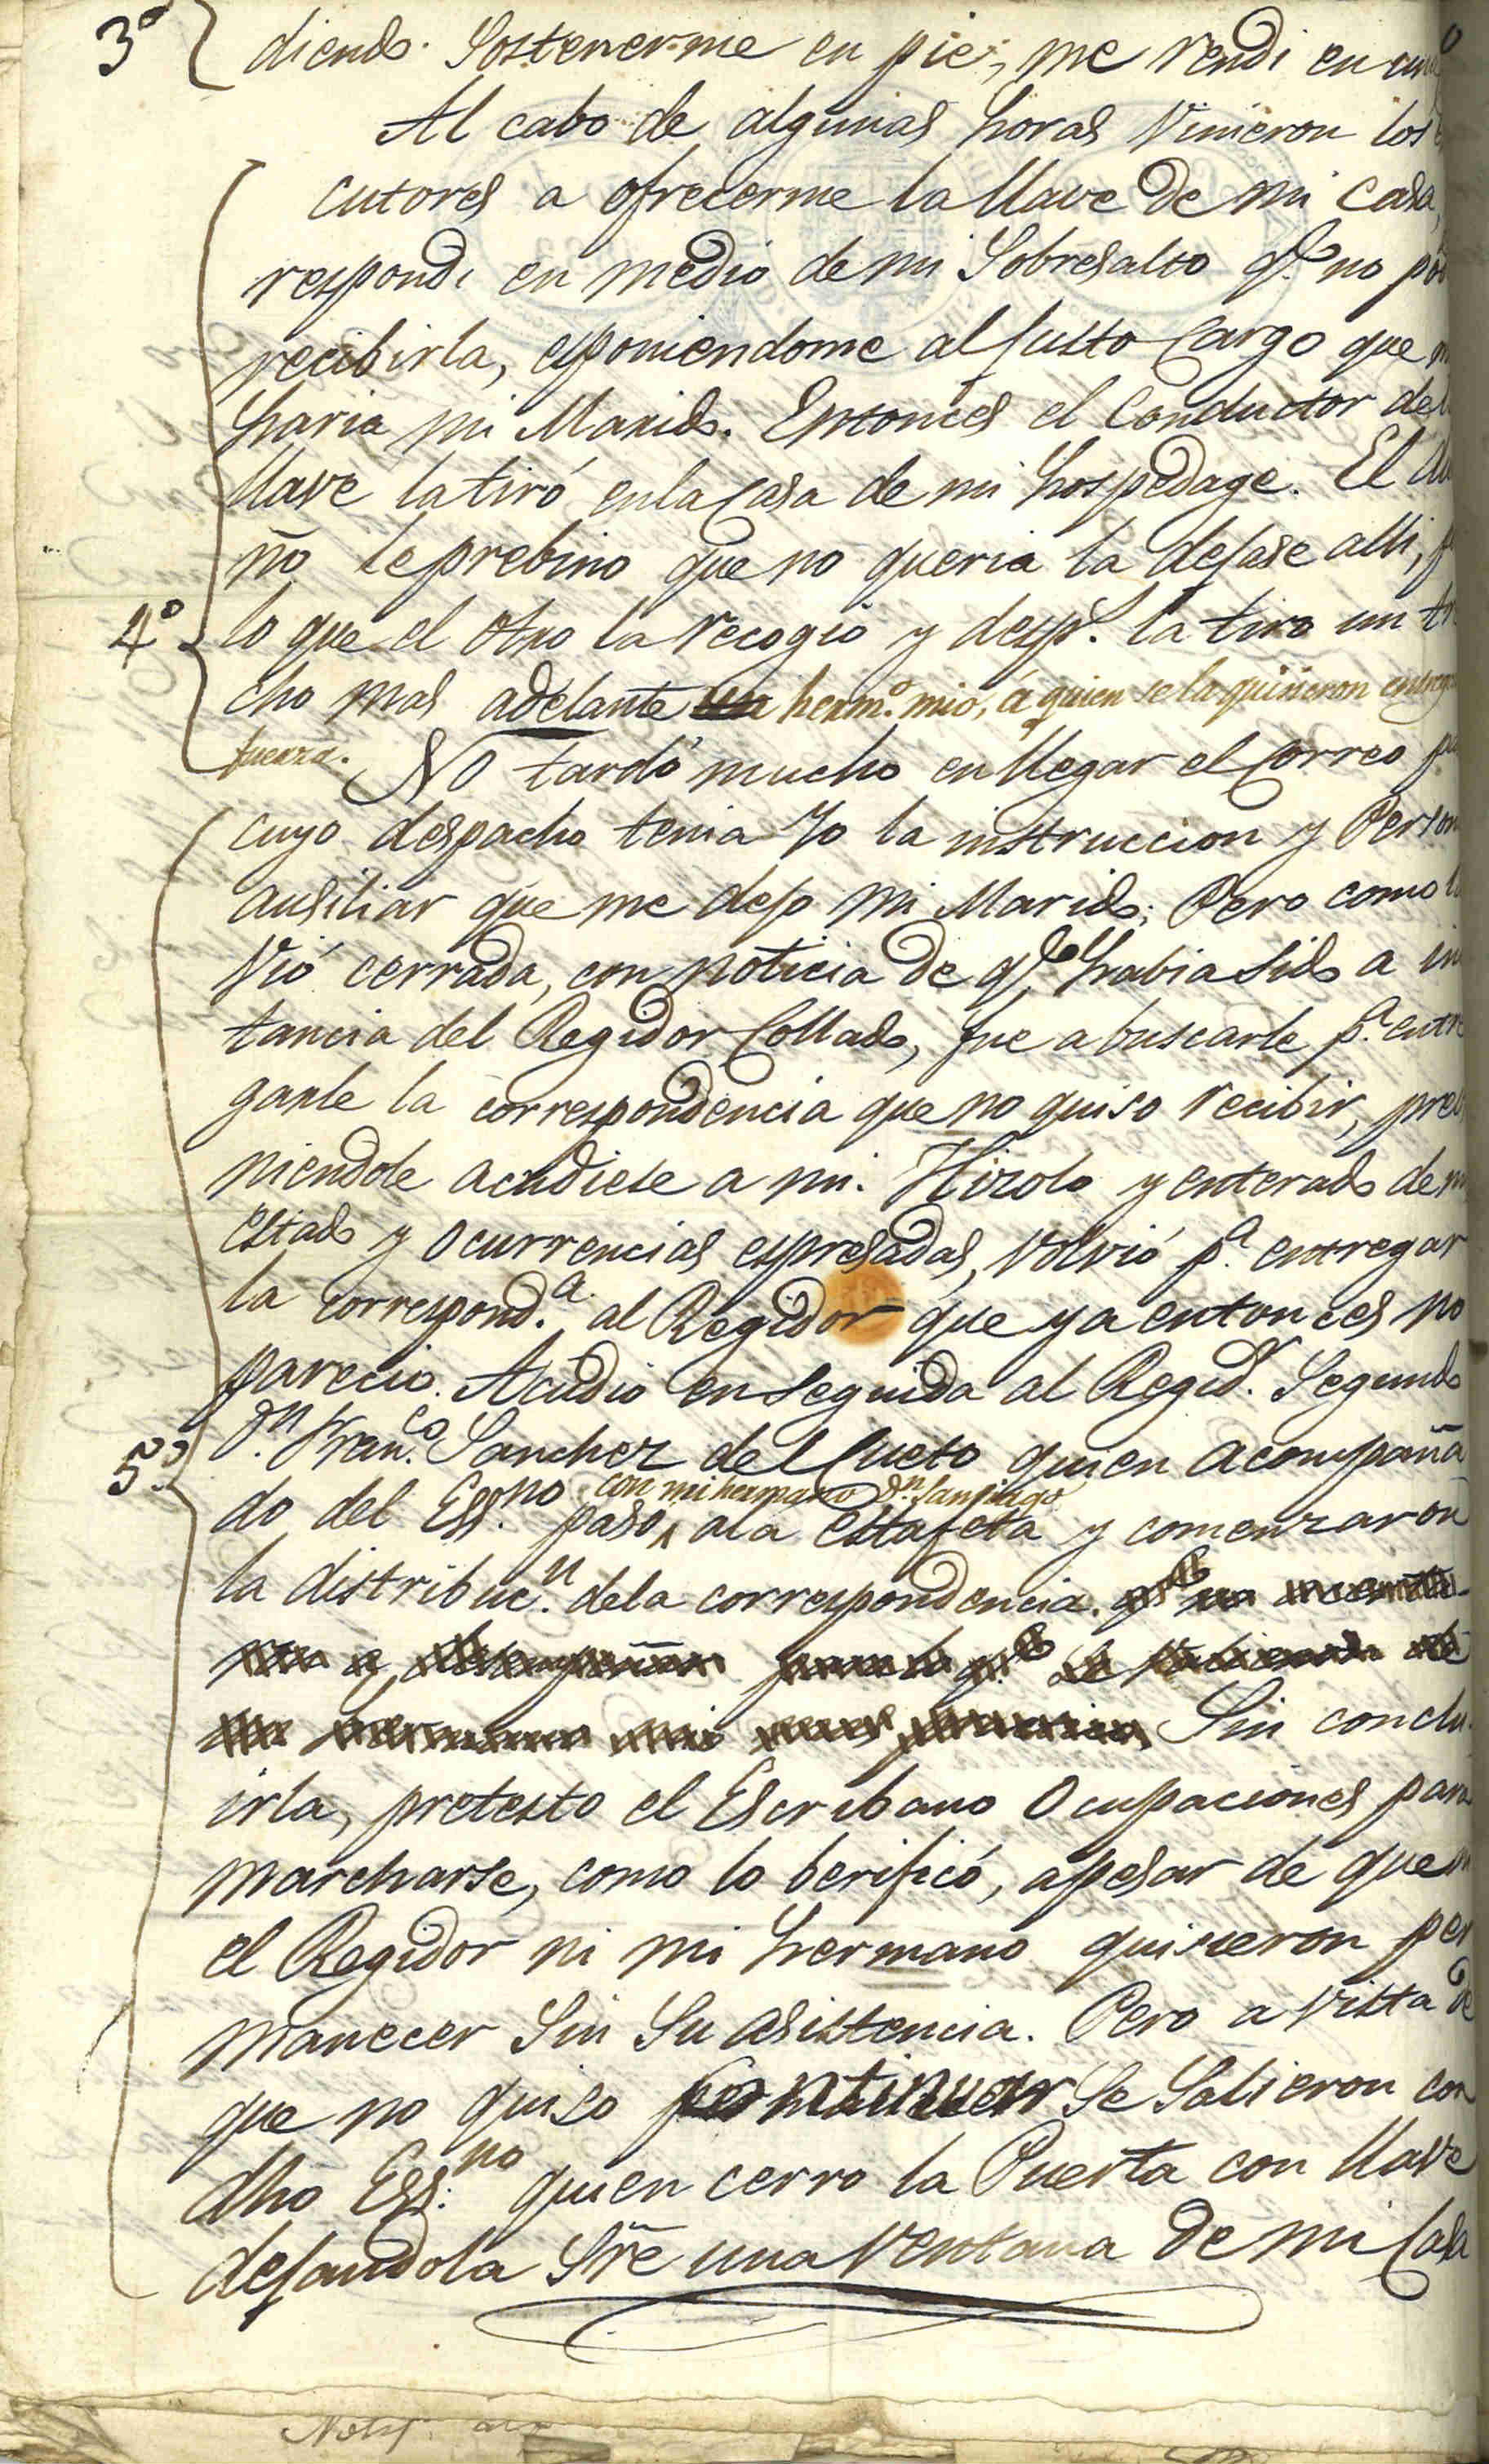 3º diendo sostenerme en pie, me rendi en una
Al cabo de algunas horas vinieron los
cutores a ofrecerme la llave de mi casa,
respondi en medio de mi sobresalto q.e no po
recibirla, esponiendome al justo cargo que
haria mi Marido. Entonces el conductor de
llave la tiró en la casa de mi hospedage. El
ño le prebino que no queria la dejase alli,
4º lo que el otro la recogió y desp.s la tiro un tre
cho mas adelante herm.º mio, á quien se la quisieron entreg
fuerza. No tardó mucho en llegar el Correo
cuyo despacho tenia yo la instruccion y Person
ausiliar que me dejo mi Marido; Pero como
vió cerrada, con noticia de q.e habia sido a in
tancia del Regidor Collado, fue a buscarle p.a entre
garle la correspondencia que no quiso recibir, pre
niendole acudiese a mi. Hizolo y enterado de
estado y ocurrencias espresadas, volvió p.a entregar
la correspond.a al Regidor que ya entonces no
parecio. Acudio en seguida al Regid.r Segundo
5º D.n Fran.co Sanchez del Cueto quien acompaña
con mi hermano D.n Santiago
do del Ess.no paso a la estafeta y comenzaron
la distribuc.n de la correspondencia. q.e no
q.e
hermano mio Sin conclu
irla, pretesto el Escribano ocupaciones para
marcharse, como lo berificó, apesar de que
el Regidor ni mi hermano quisieron per
manecer sin su asistencia. Pero a vista de
que no quiso continuar se salieron con
dho Ess.no quien cerro la Puerta con llave
dejandola sre una ventana de mi Casa